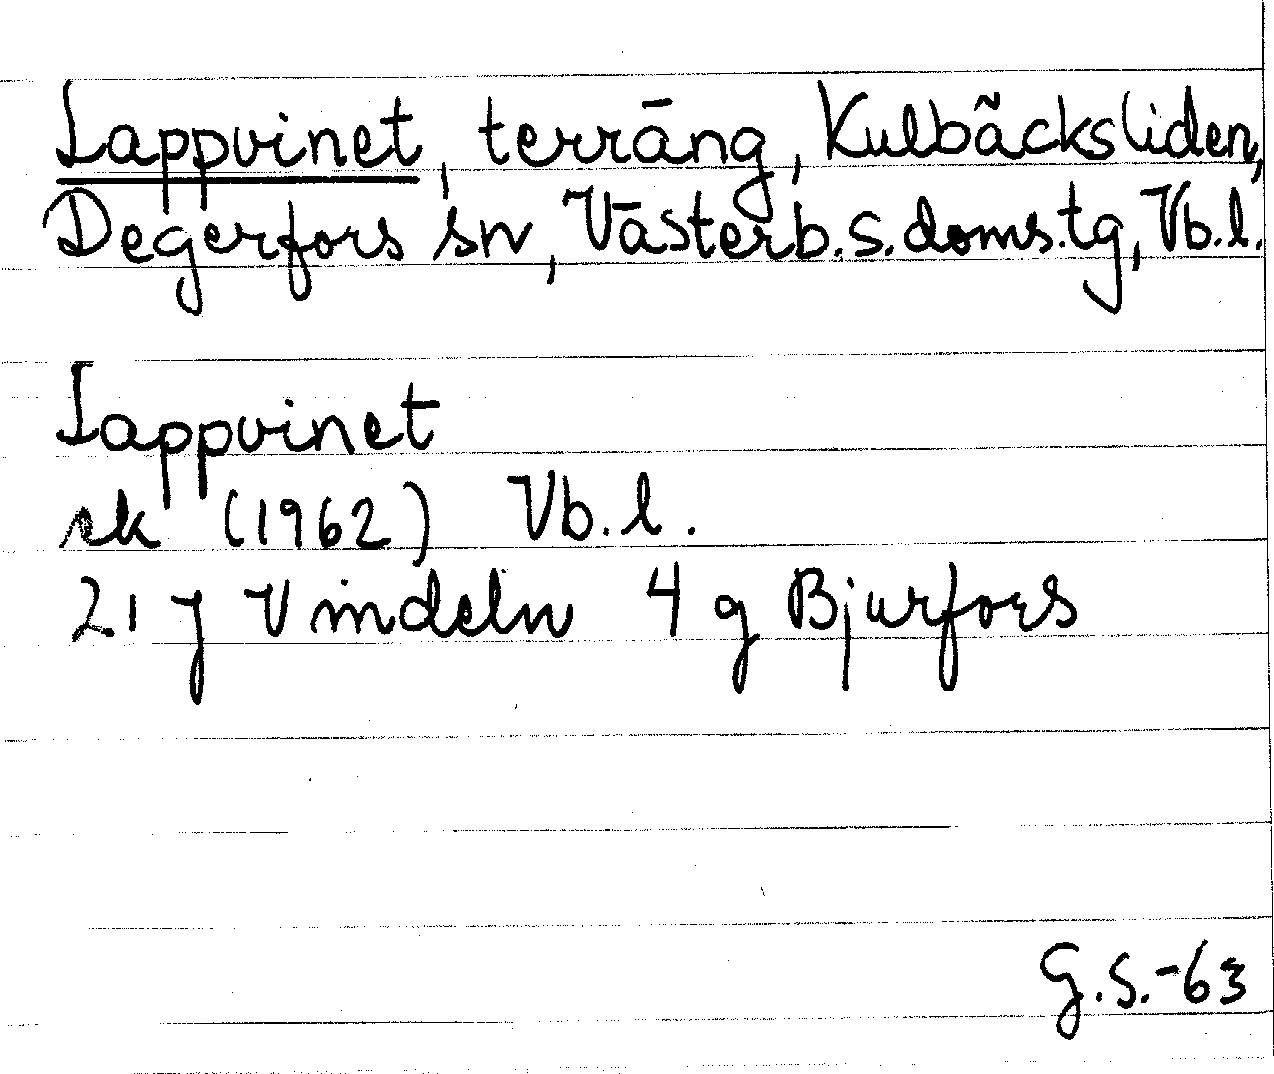 Lappvinet, terräng, Kulbäcksliden,
Degerfors sn, Västerb.s.doms.tg, Vb.l.
Lappvinet
sk (1962) Vb.l.
21 J Vindeln 4 g Bjurfors
G.S.-63